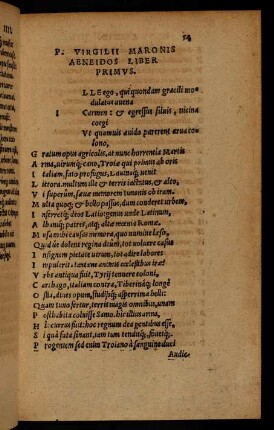 14
P. VIRGILII MARONIS
AENEIDOS LIBER
PRIMVS.
LLE ego, qui quondam gracili mo-
dulatus auena
I Carmen: & egressus siluis, uicina
coegi
Vt quamuis auido parerent arua co-
lono,
G ratum opus agricolis, at nunc horrentia Martis
A rma, uirumq; cano, Troiæ qui primus ab oris
I taliam, fato profugus, Lauinaq; uenit
L ittora. multum ille & terris iactatus, & alto,
V i superûm, sæuæ memorem Iunonis ob iram.
M ulta quoq; & bello passus, dum conderet urbem,
I nferretq; deos Latio: genus unde Latinum,
A lbaniq; patres, atq; altæ mœnia Romæ.
M usa mihi causas memora, quo numine læso,
Q uid ue dolens regina deûm, tot voluere casus
I nsignem pietate uirum, tot adire labores
I mpulerit. tantæ ne animis cœlestibus iræ?
V rbs antiqua fuit, Tyrij tenuere coloni,
C arthago, Italiam contra, Tiberinaq; longè
O stia, diues opum, studijsq; asperrima belli:
Q uam Iuno fertur, terris magis omnibus, unam
P osthabita coluisse Samo. hic illius arma,
H ic currus fuit: hoc regnum dea gentibus esse,
S i qua fata sinant, iam tum tenditq;, fouetq;.
P rogeniem sed enim Troiano à sanguine duci
Audie-